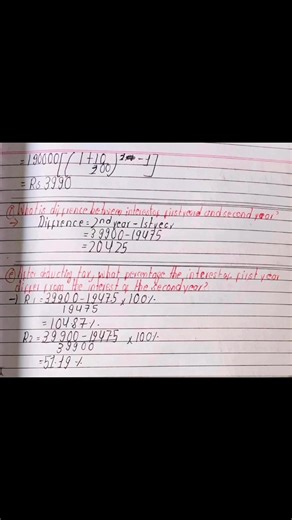 =190000[(1+10/200)^2*-1]
=Rs.3990
① What is diffrence between interest of first year and second year?
→ Diffrence = 2nd year - 1st year
= 39900-19475
= 20425
② After deducting tax, what percentage the interest of first year
differ from the interest of the second year?
→ R1 = 39900-19475/19475 × 100%
= 104.87%
R2 = 39900-19475/39900 × 100%
= 51.19%